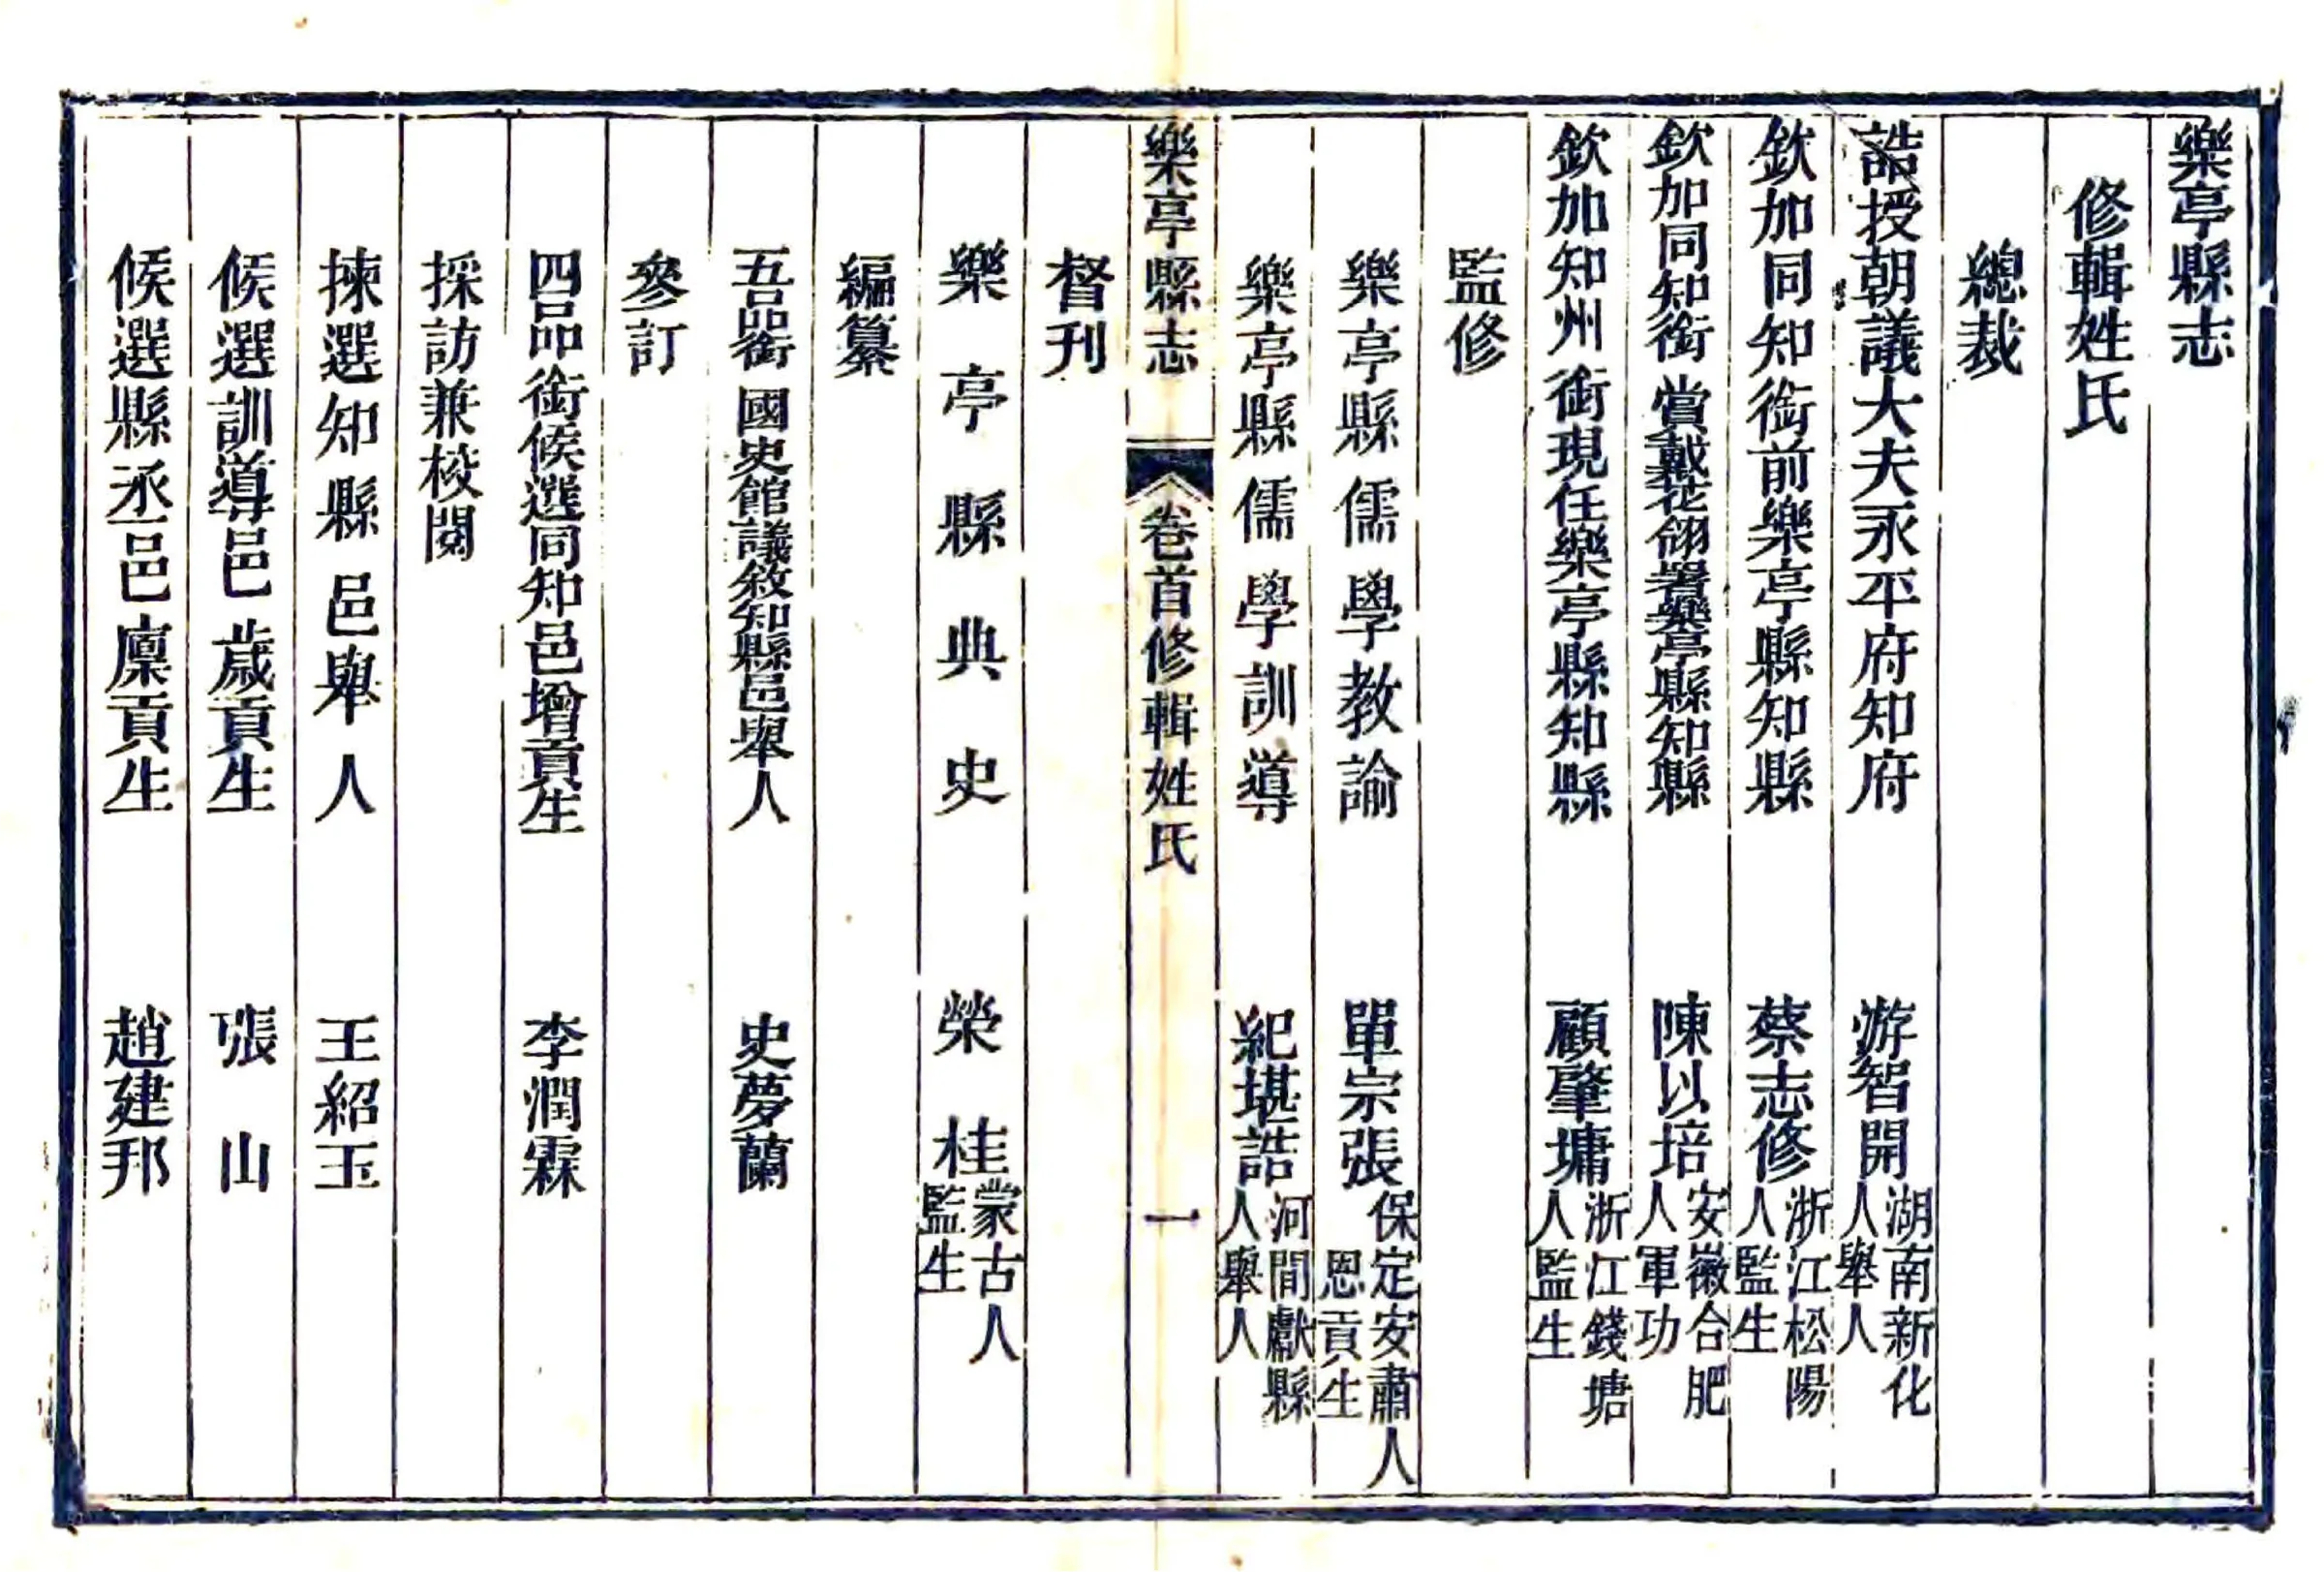 樂亭縣志
修輯姓氏
總裁
誥授朝議大夫永平府知府 游智開 湖南新化人舉人
欽加同知銜前樂亭縣知縣 蔡志修 浙江松陽人監生
欽加同知銜 賞戴花翎署樂亭縣知縣 陳以培 安徽合肥人軍功
欽加知州銜現任樂亭縣知縣 顧肇墉 浙江錢塘人監生
監修
樂亭縣儒學教諭 單宗張 保定安肅人恩貢生
樂亭縣儒學訓導 紀堪誥 河間獻縣人舉人
樂亭縣志 卷首修輯姓氏 一
督刊
樂亭縣典史 榮桂 蒙古人監生
編纂
五品銜 國史館議敘知縣邑舉人 史夢蘭
參訂
四品銜候選同知邑增貢生 李潤霖
採訪兼校閱
揀選知縣邑舉人 王紹玉
候選訓導邑歲貢生 張山
候選縣丞邑廩貢生 趙建邦